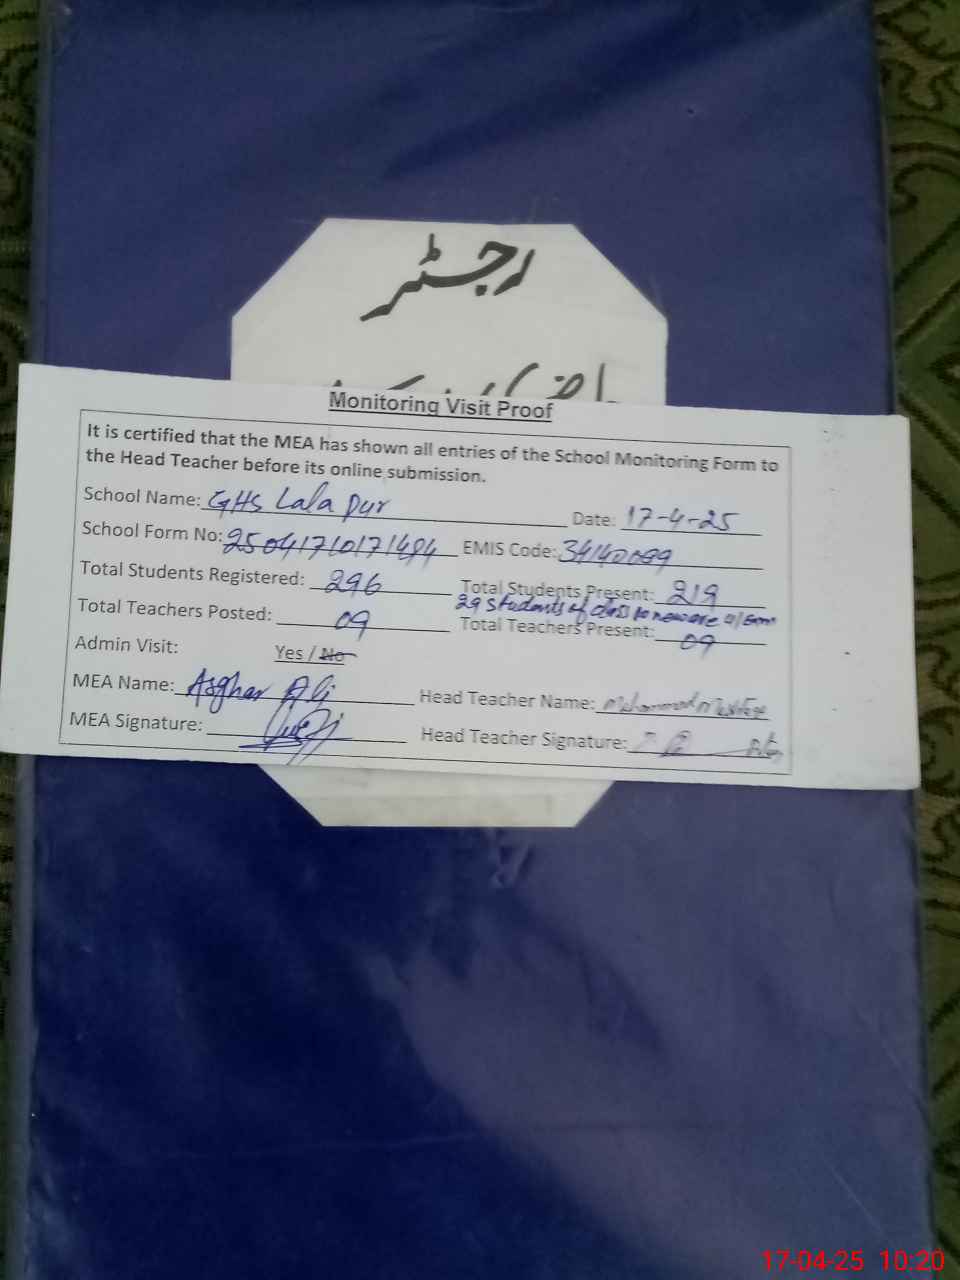 رجسٹر
Monitoring Visit Proof
It is certified that the MEA has shown all entries of the School Monitoring Form to
the Head Teacher before its online submission.
School Name: GHS Lala pur Date: 17-4-25
School Form No: EMIS Code:
Total Students Registered: 296 Total Students Present: 219
29 students of class
Total Teachers Posted: 09 Total Teachers Present: 09
Admin Visit: Yes / No
MEA Name: Asghar Ali Head Teacher Name:
MEA Signature: Head Teacher Signature:
17-04-25 10:20